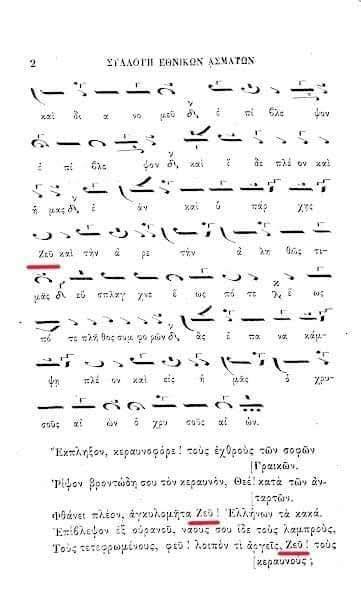 2 ΣΥΛΛΟΓΗ ΕΘΝΙΚΩΝ ᾈΣΜΑΤΩΝ
καὶ δι α νο μεῦ ἐ πί βλε ψον
ἐ πί βλε ψον καὶ ἴ δε πλέ ον καὶ
ἡ μας ἐ ὰν καὶ ὑ πάρ χῃς
Ζεῦ καὶ τὴν ἀ ρε τὴν ἀ λη θῶς τι-
μᾷς εὔ σπλαγ χνε ἕ ως πό τε ἕ ως
πό τε πλῆ θος συμ φο ρῶν ἂς ἐ πα να κάμ-
ψῃ πλέ ον καὶ εἰς ἡ μᾶς ὁ χρυ-
σοῦς αἰ ὼν ὁ χρυ σοῦς αἰ ών.
Ἔκπληξον, κεραυνοφόρε! τοὺς ἐχθροὺς τῶν σοφῶν
[Γραικῶν.
Ῥίψον βροντώδη σου τὸν κεραυνὸν, Θεέ! κατὰ τῶν ἀν-
[ταρτῶν.
Φθάνει πλέον, ἀγκυλομῆτα Ζεῦ! Ἑλλήνων τὰ κακά.
Ἐπίβλεψον ἐξ οὐρανοῦ, ναούς σου ἴδε τοὺς λαμπροὺς,
Τοὺς τετεφρωμένους, φεῦ! λοιπὸν τί ἀργεῖς, Ζεῦ! τοὺς
[κεραυνούς;